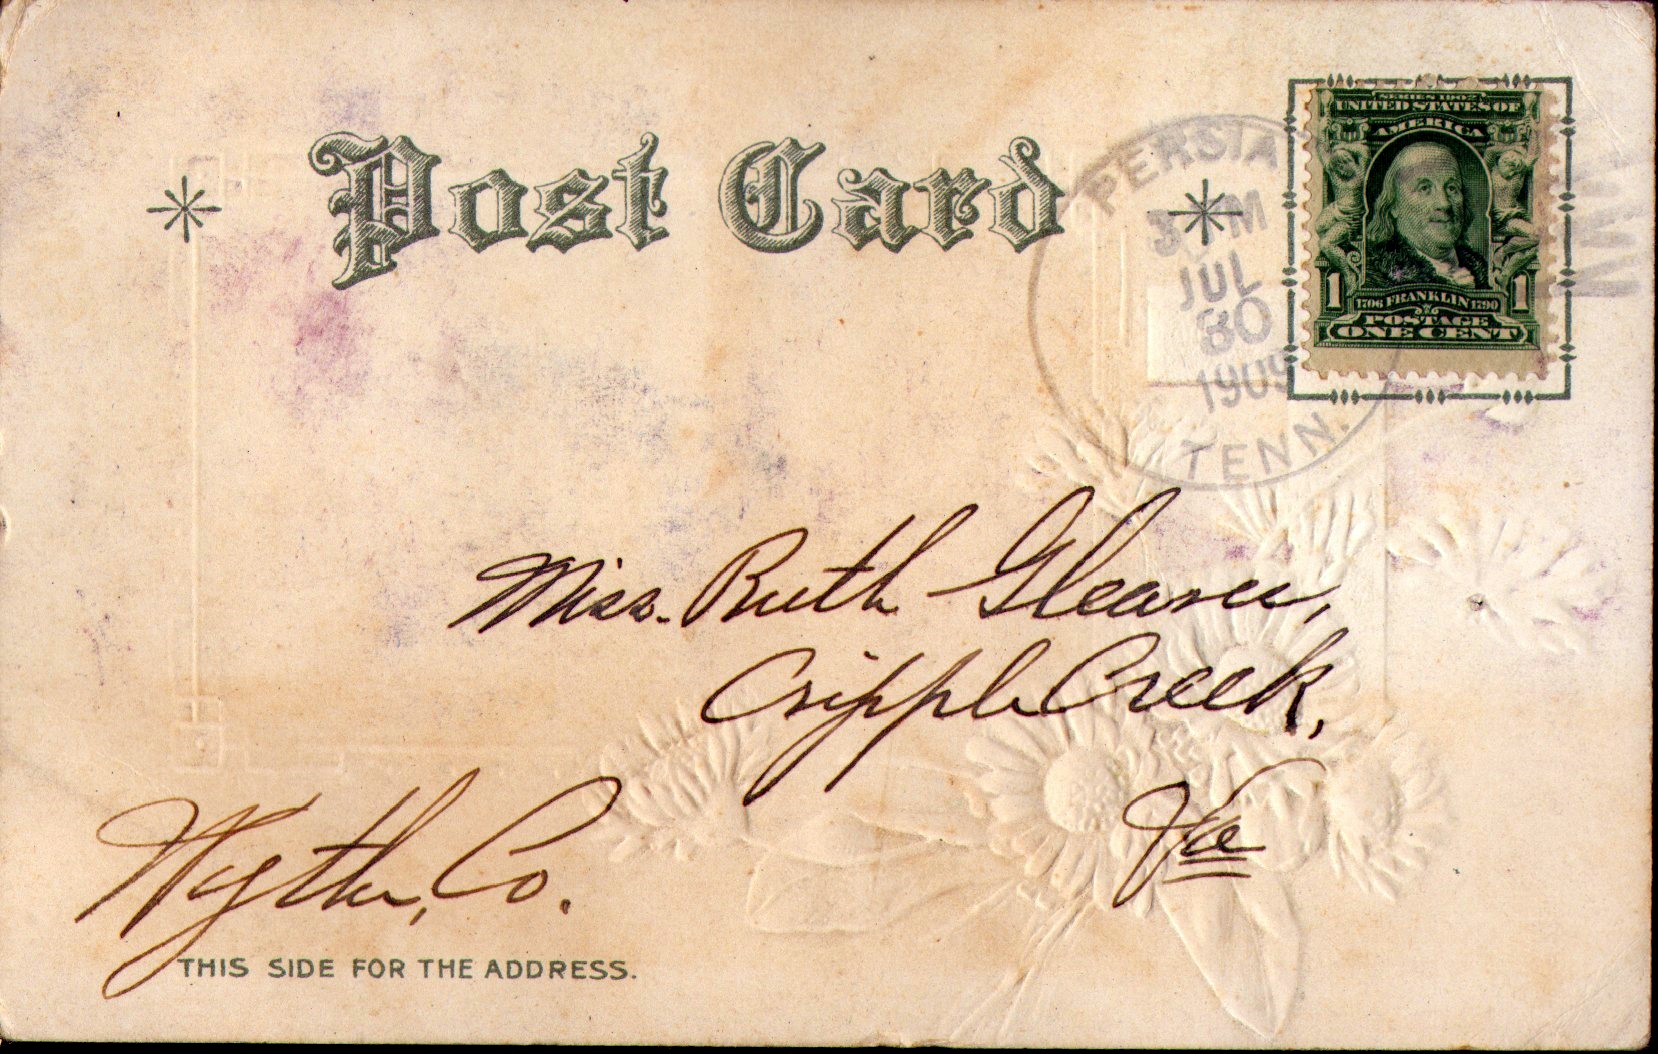 Post Card
PERSIA
M
JUL
30
1909
TENN.
SERIES 1902
UNITED STATES OF
AMERICA
1 1
1706 FRANKLIN 1790
POSTAGE
ONE CENT
Miss. Ruth Gleaves,
Cripple Creek,
Va
Wythe, Co.
THIS SIDE FOR THE ADDRESS.